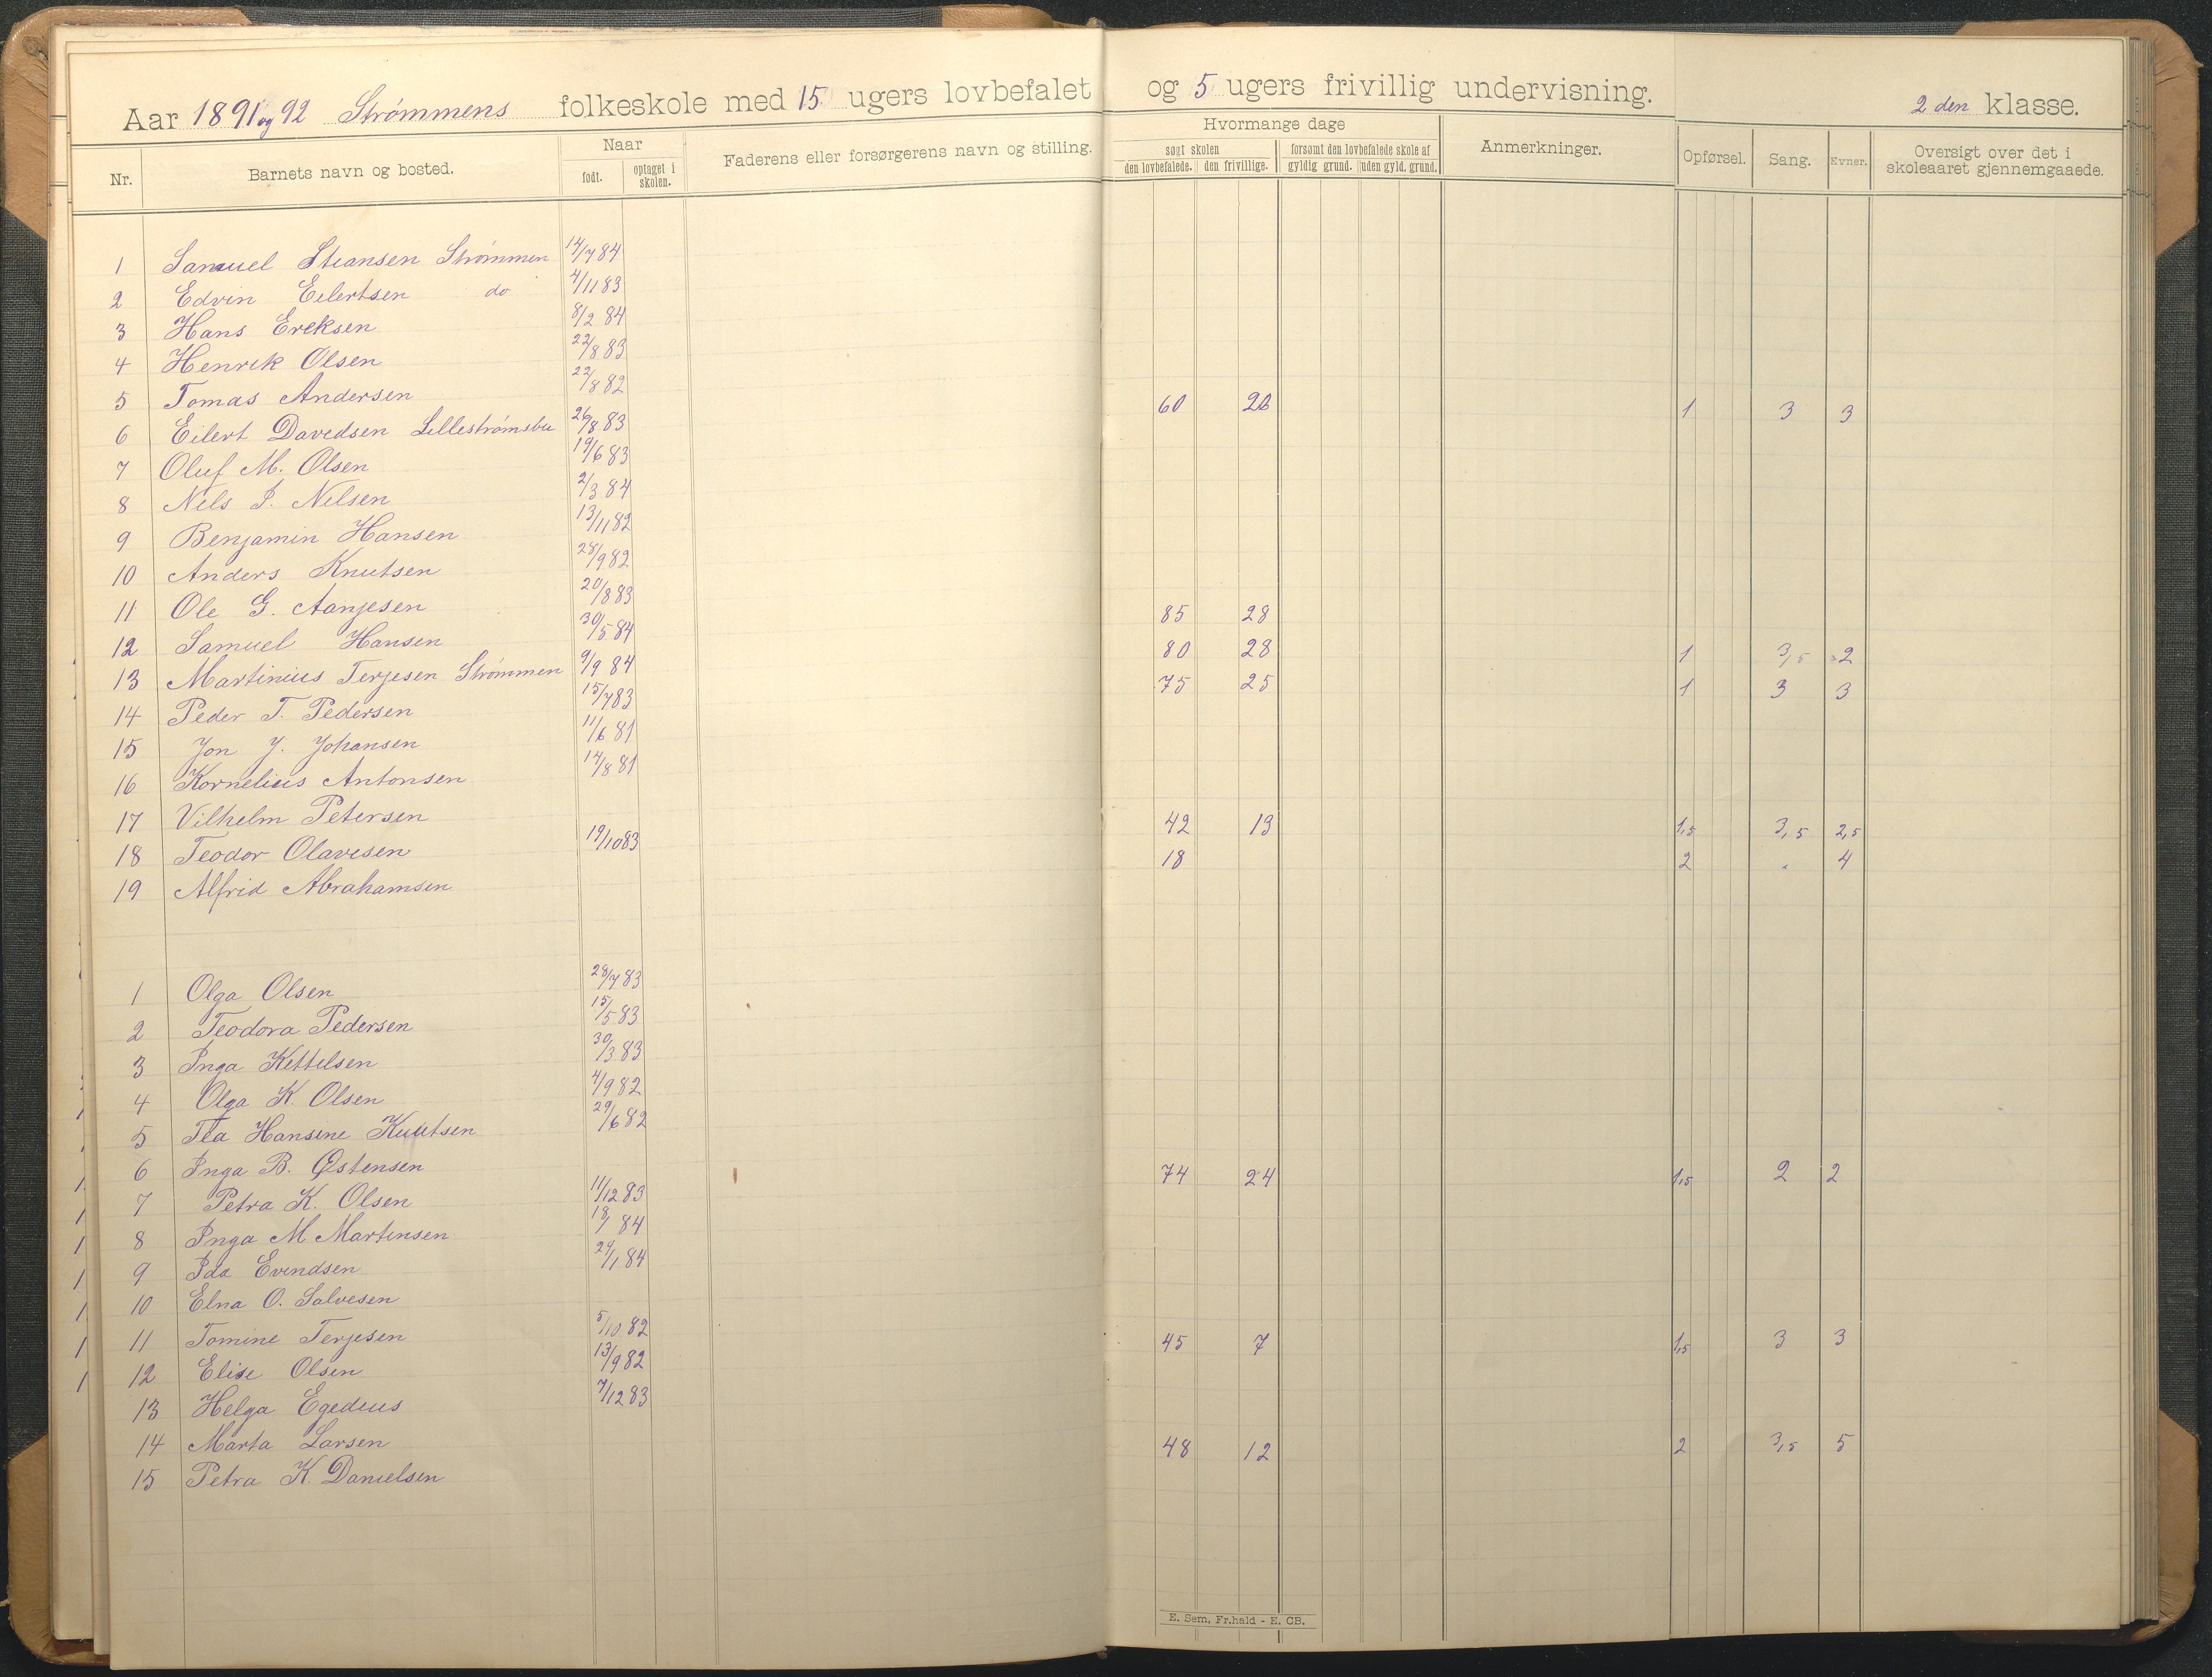 Aar 1891 og 92 Strømmens folkeskole med 15 ugers lovbefalet og 5 ugers frivillig undervisning. 2den klasse.
Nr. Barnets navn og bosted. Naar født. optaget i skolen. Faderens eller forsørgerens navn og stilling. Hvormange dage søgt skolen den lovbefalede. den frivillige. forsømt den lovbefalede skole af gyldig grund. uden gyld. grund. Anmerkninger. Opførsel. Sang. Evner. Oversigt over det i skoleaaret gjennemgaaede.
1 Samuel Stiansen Strømmen 14/7 84
2 Edvin Eilertsen do 4/11 83
3 Hans Ereksen 8/2 84
4 Henrik Olsen 22/8 83
5 Tomas Andersen 22/8 82 60 20 1 3 3
6 Eilert Davedsen Lillestrømsbu 26/8 83
7 Oluf M. Olsen 19/6 83
8 Nils J. Nilsen 2/3 84
9 Benjamin Hansen 13/11 82
10 Anders Knutsen 28/9 82
11 Ole G. Aanjesen 20/8 83 85 28
12 Samuel Hansen 30/5 84 80 28 1 3,5 2
13 Martinius Terjesen Strømmen 9/9 84 75 25 1 3 3
14 Peder T. Pedersen 15/7 83
15 Jon J. Johansen 11/6 81
16 Kornelius Antonsen 14/8 81
17 Vilhelm Petersen 42 19 1,5 3,5 2,5
18 Teodor Olavesen 19/10 83 18 2 . 4
19 Alfrid Abrahamsen
1 Olga Olsen 28/7 83
2 Teodora Pedersen 15/5 83
3 Inga Kettelsen 30/3 83
4 Olga K. Olsen 4/9 82
5 Tea Hansine Knutsen 29/6 82
6 Inga B. Østensen 74 24 1,5 2 2
7 Petra K. Olsen 11/12 83
8 Inga M Martinsen 18/1 84
9 Ida Evendsen 24/1 84
10 Elna O. Salvesen
11 Tomine Terjesen 5/10 82 45 7 1,5 3 3
12 Elise Olsen 13/9 82
13 Helga Egedius 7/12 83
14 Marta Larsen 48 12 2 3,5 5
15 Petra K. Danielsen
E. Sem, Fr.hald - E. CB.